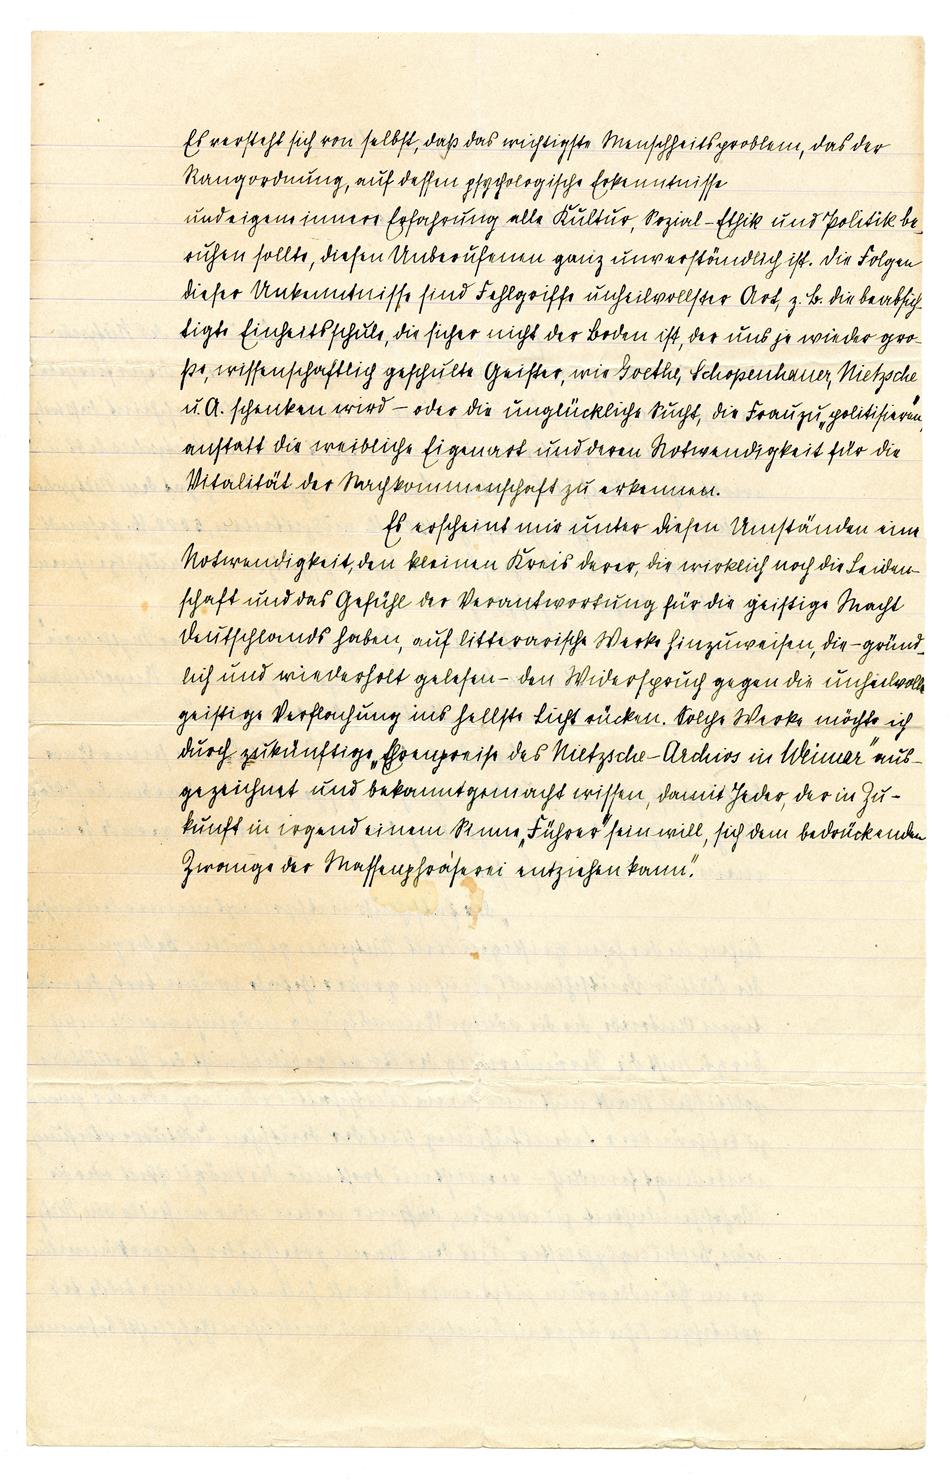 Es versteht sich von selbst, daß das wichtigste Menschheitsproblem, das der
Rangordnung, auf dessen psychologische Erkenntnisse
und eigene innere Erfahrung alle Kultur, Sozial-Ethik und Politik be-
ruhen sollte, diesen Unberufenen ganz unverständlich ist. Die Folgen
dieser Unkenntnisse sind Fehlgriffe unheilvollster Art, z. B. die beabsich-
tigte Einheitsschule, die sicher nicht der Boden ist, der uns je wieder gro-
ße, wissenschaftlich geschulte Geister, wie Goethe, Schopenhauer, Nietzsche
u. A. schenken wird – oder die unglückliche Sucht, die Frau zu „politisieren“,
anstatt die weibliche Eigenart und deren Notwendigkeit für die
Vitalität der Nachkommenschaft zu erkennen.
Es erscheint mir unter diesen Umständen eine
Notwendigkeit, den kleinen Kreis derer, die wirklich noch die Leiden-
schaft und das Gefühl der Verantwortung für die geistige Macht
Deutschlands haben, auf litterarische Werke hinzuweisen, die – gründ-
lich und wiederholt gelesen – den Widerspruch gegen die unheilvolle
geistige Verflachung ins hellste Licht rücken. Solche Werke möchte ich
durch zukünftige „Ehrenpreise des Nietzsche-Archivs in Weimar“ aus-
gezeichnet und bekanntgemacht wissen, damit Jeder, der in Zu-
kunft in irgend einem Sinne „Führer“ sein will, sich dem bedrückenden
Zwange der Massenphräserei entziehen kann“.